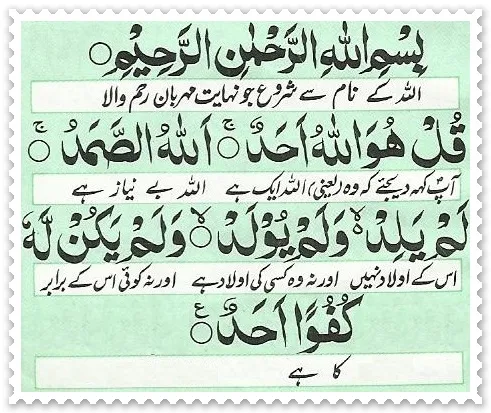 بِسْمِ اللهِ الرَّحْمٰنِ الرَّحِيْمِ ○
اللہ کے نام سے شروع جو نہایت مہربان رحم والا
قُلْ هُوَ اللهُ اَحَدٌ ○ ۚ اَللهُ الصَّمَدُ ○ ۚ
آپؐ کہہ دیجئے کہ وہ (یعنی) اللہ ایک ہے اللہ بے نیاز ہے
لَمْ يَلِدْ ۙ وَلَمْ يُوْلَدْ ○ ۙ وَلَمْ يَكُنْ لَّهٗ
اس کے اولاد نہیں اور نہ وہ کسی کی اولاد ہے اور نہ کوئی اس کے برابر
كُفُوًا اَحَدٌ ○ ع
کا ہے